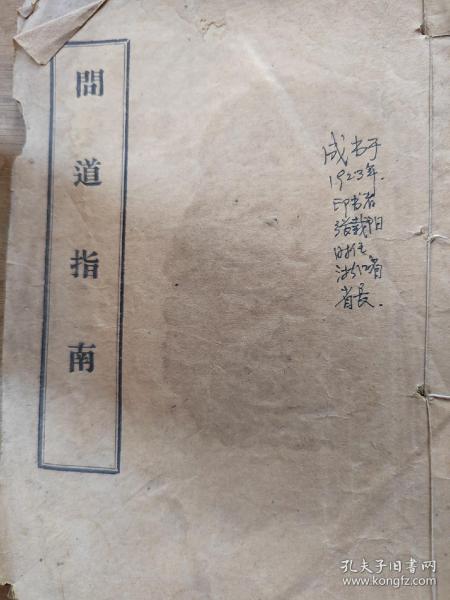 問道指南
成书于
1923年.
印书者
张载阳
时任
浙江省
省长.
孔夫子旧书网
www.kongfz.com